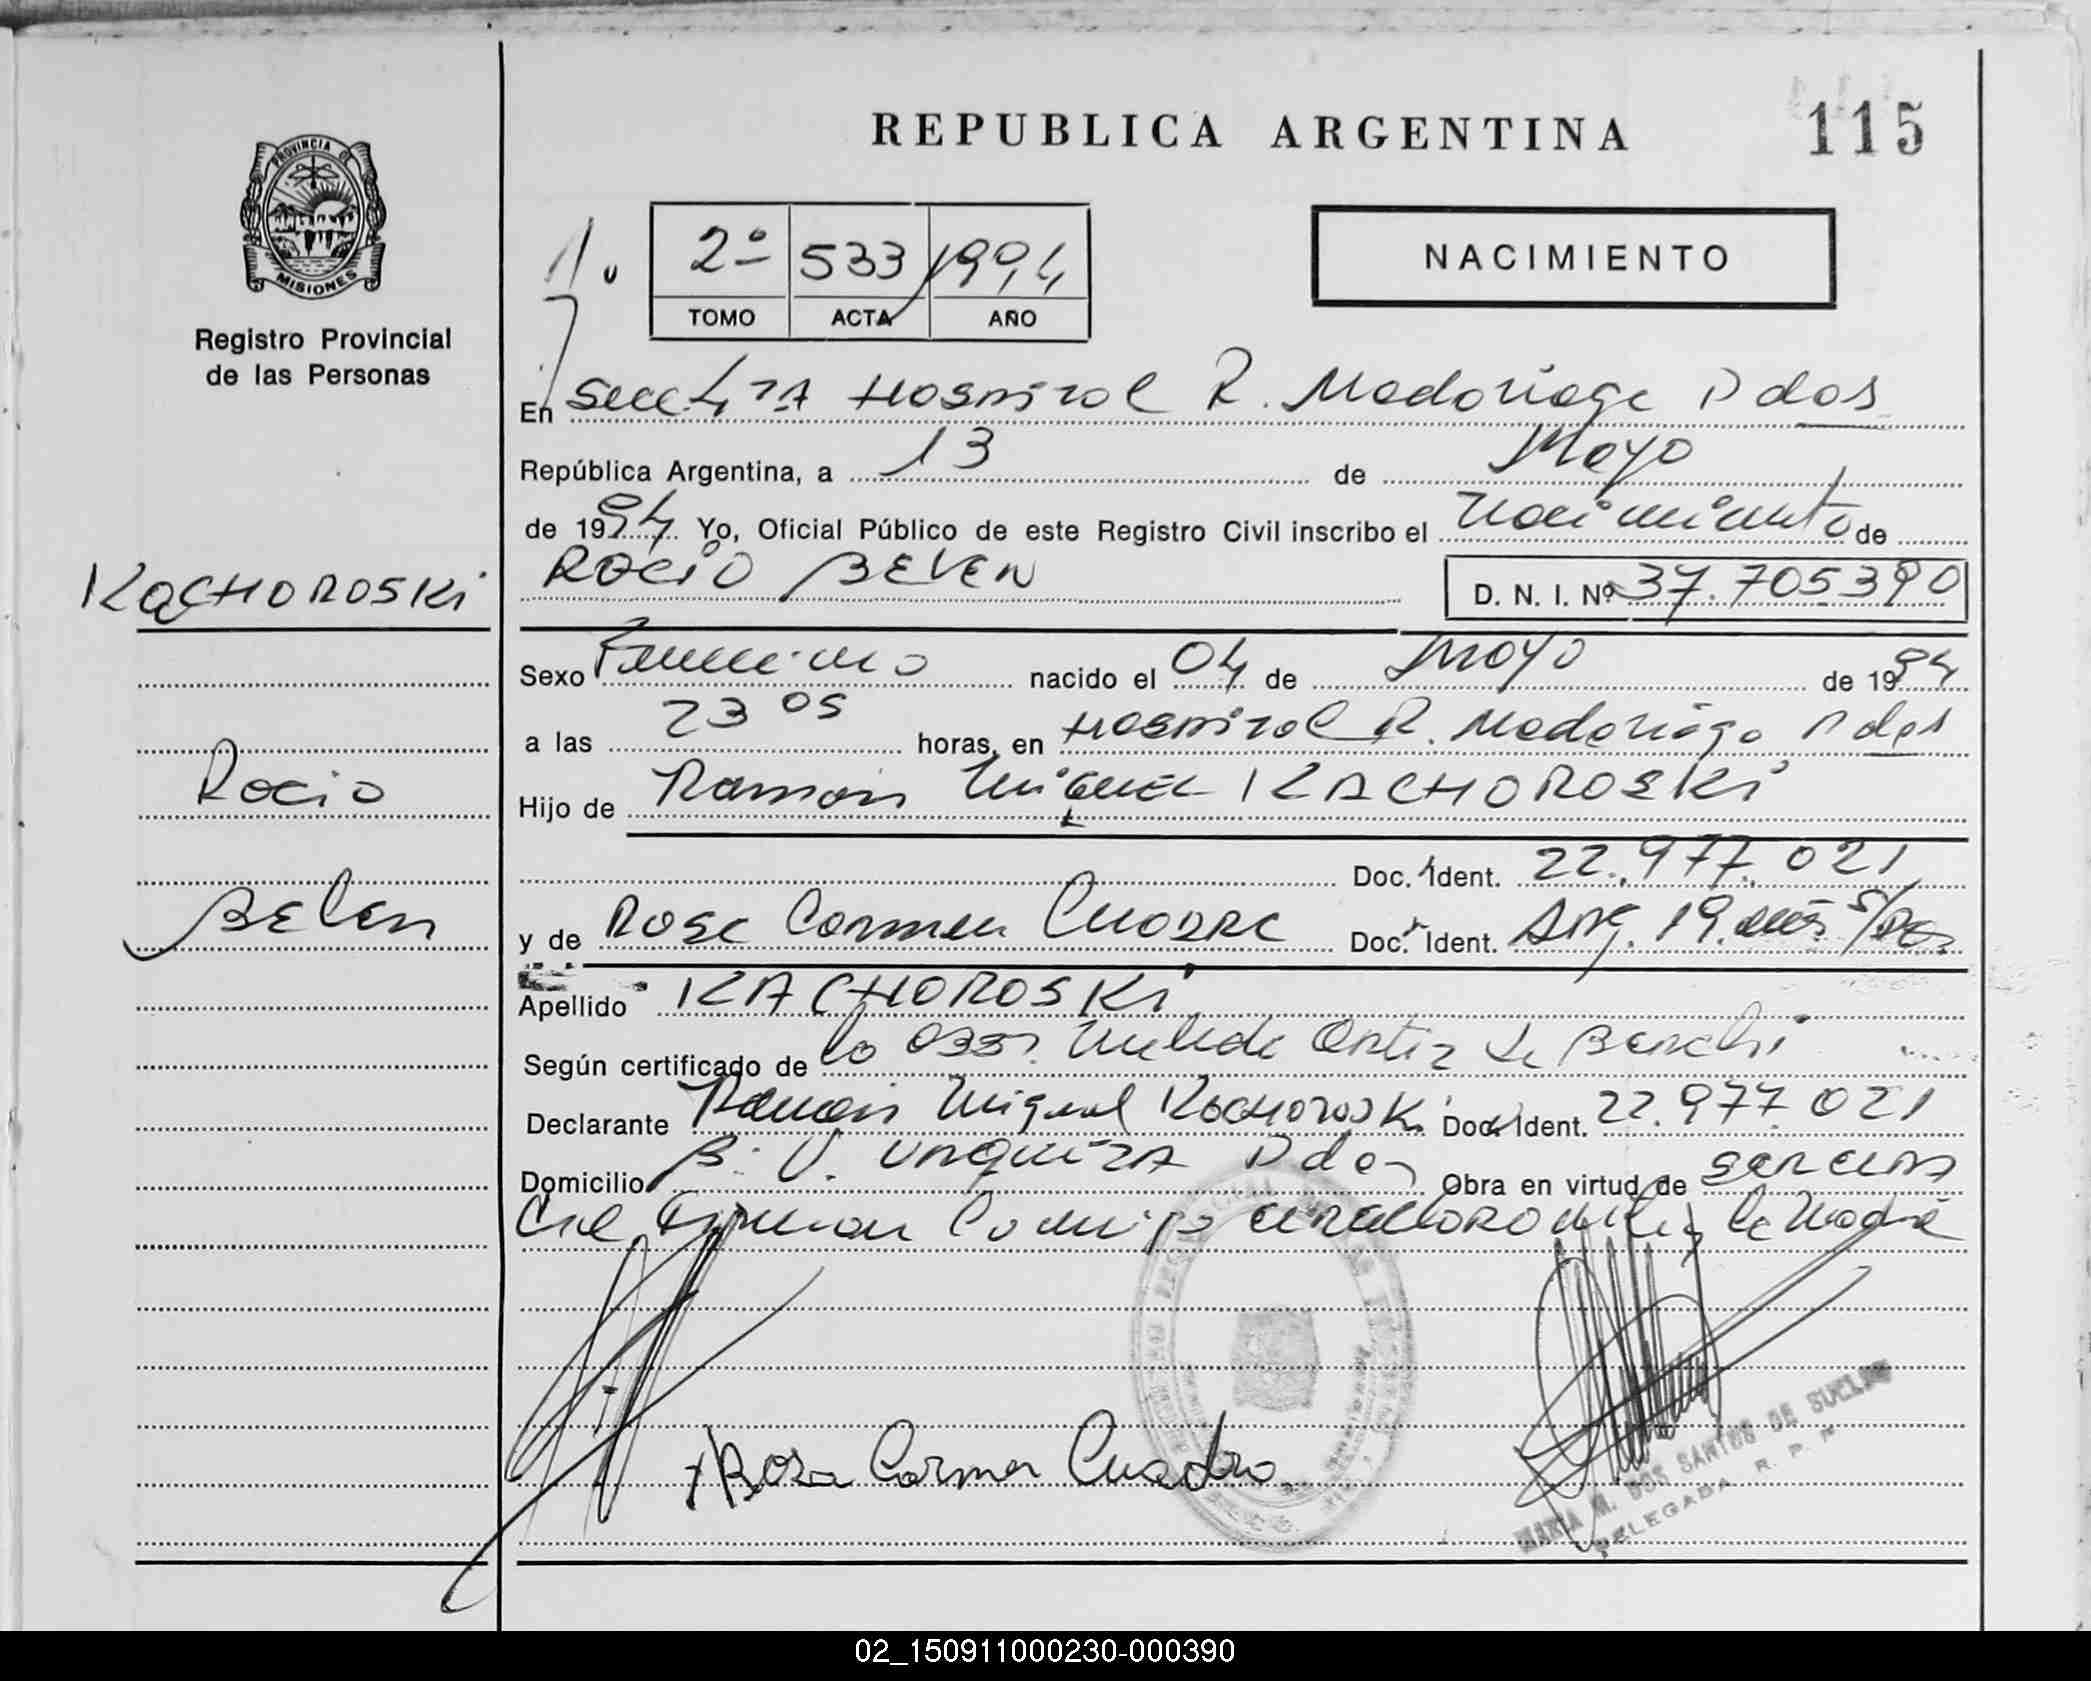 REPUBLICA ARGENTINA
115
PROVINCIA DE
MISIONES
Registro Provincial
de las Personas
2º 533 1994
TOMO ACTA AÑO
NACIMIENTO
En Secc 4ta Hospital R. Madariaga Pdas
República Argentina, a 13 de Mayo
de 1994 Yo, Oficial Público de este Registro Civil inscribo el Nacimiento de
KACHOROSKi
ROCIO BELEN
D. N. I. Nº 37.705390
Sexo Femenino nacido el 04 de Mayo de 1994
a las 23 05 horas, en Hospital R. Madariaga Pdas
Rocio
Hijo de Ramon Miguel KACHOROSKi
Doc. Ident. 22.977.021
Belen
y de Rosa Carmen Cuadra Doc. Ident. Arg. 19. años
Apellido KACHOROSKi
Según certificado de la Obst. Ortiz de
Declarante Ramon Miguel Kachoroski Doc. Ident. 22.977.021
Domicilio B. U. URQUIZA Pdas Obra en virtud de
Firman Conmigo la Madre
Rosa Carmen Cuadra
MARIA M. DOS SANTOS DE SUELDO
DELEGADA R. P. P.
02_150911000230-000390